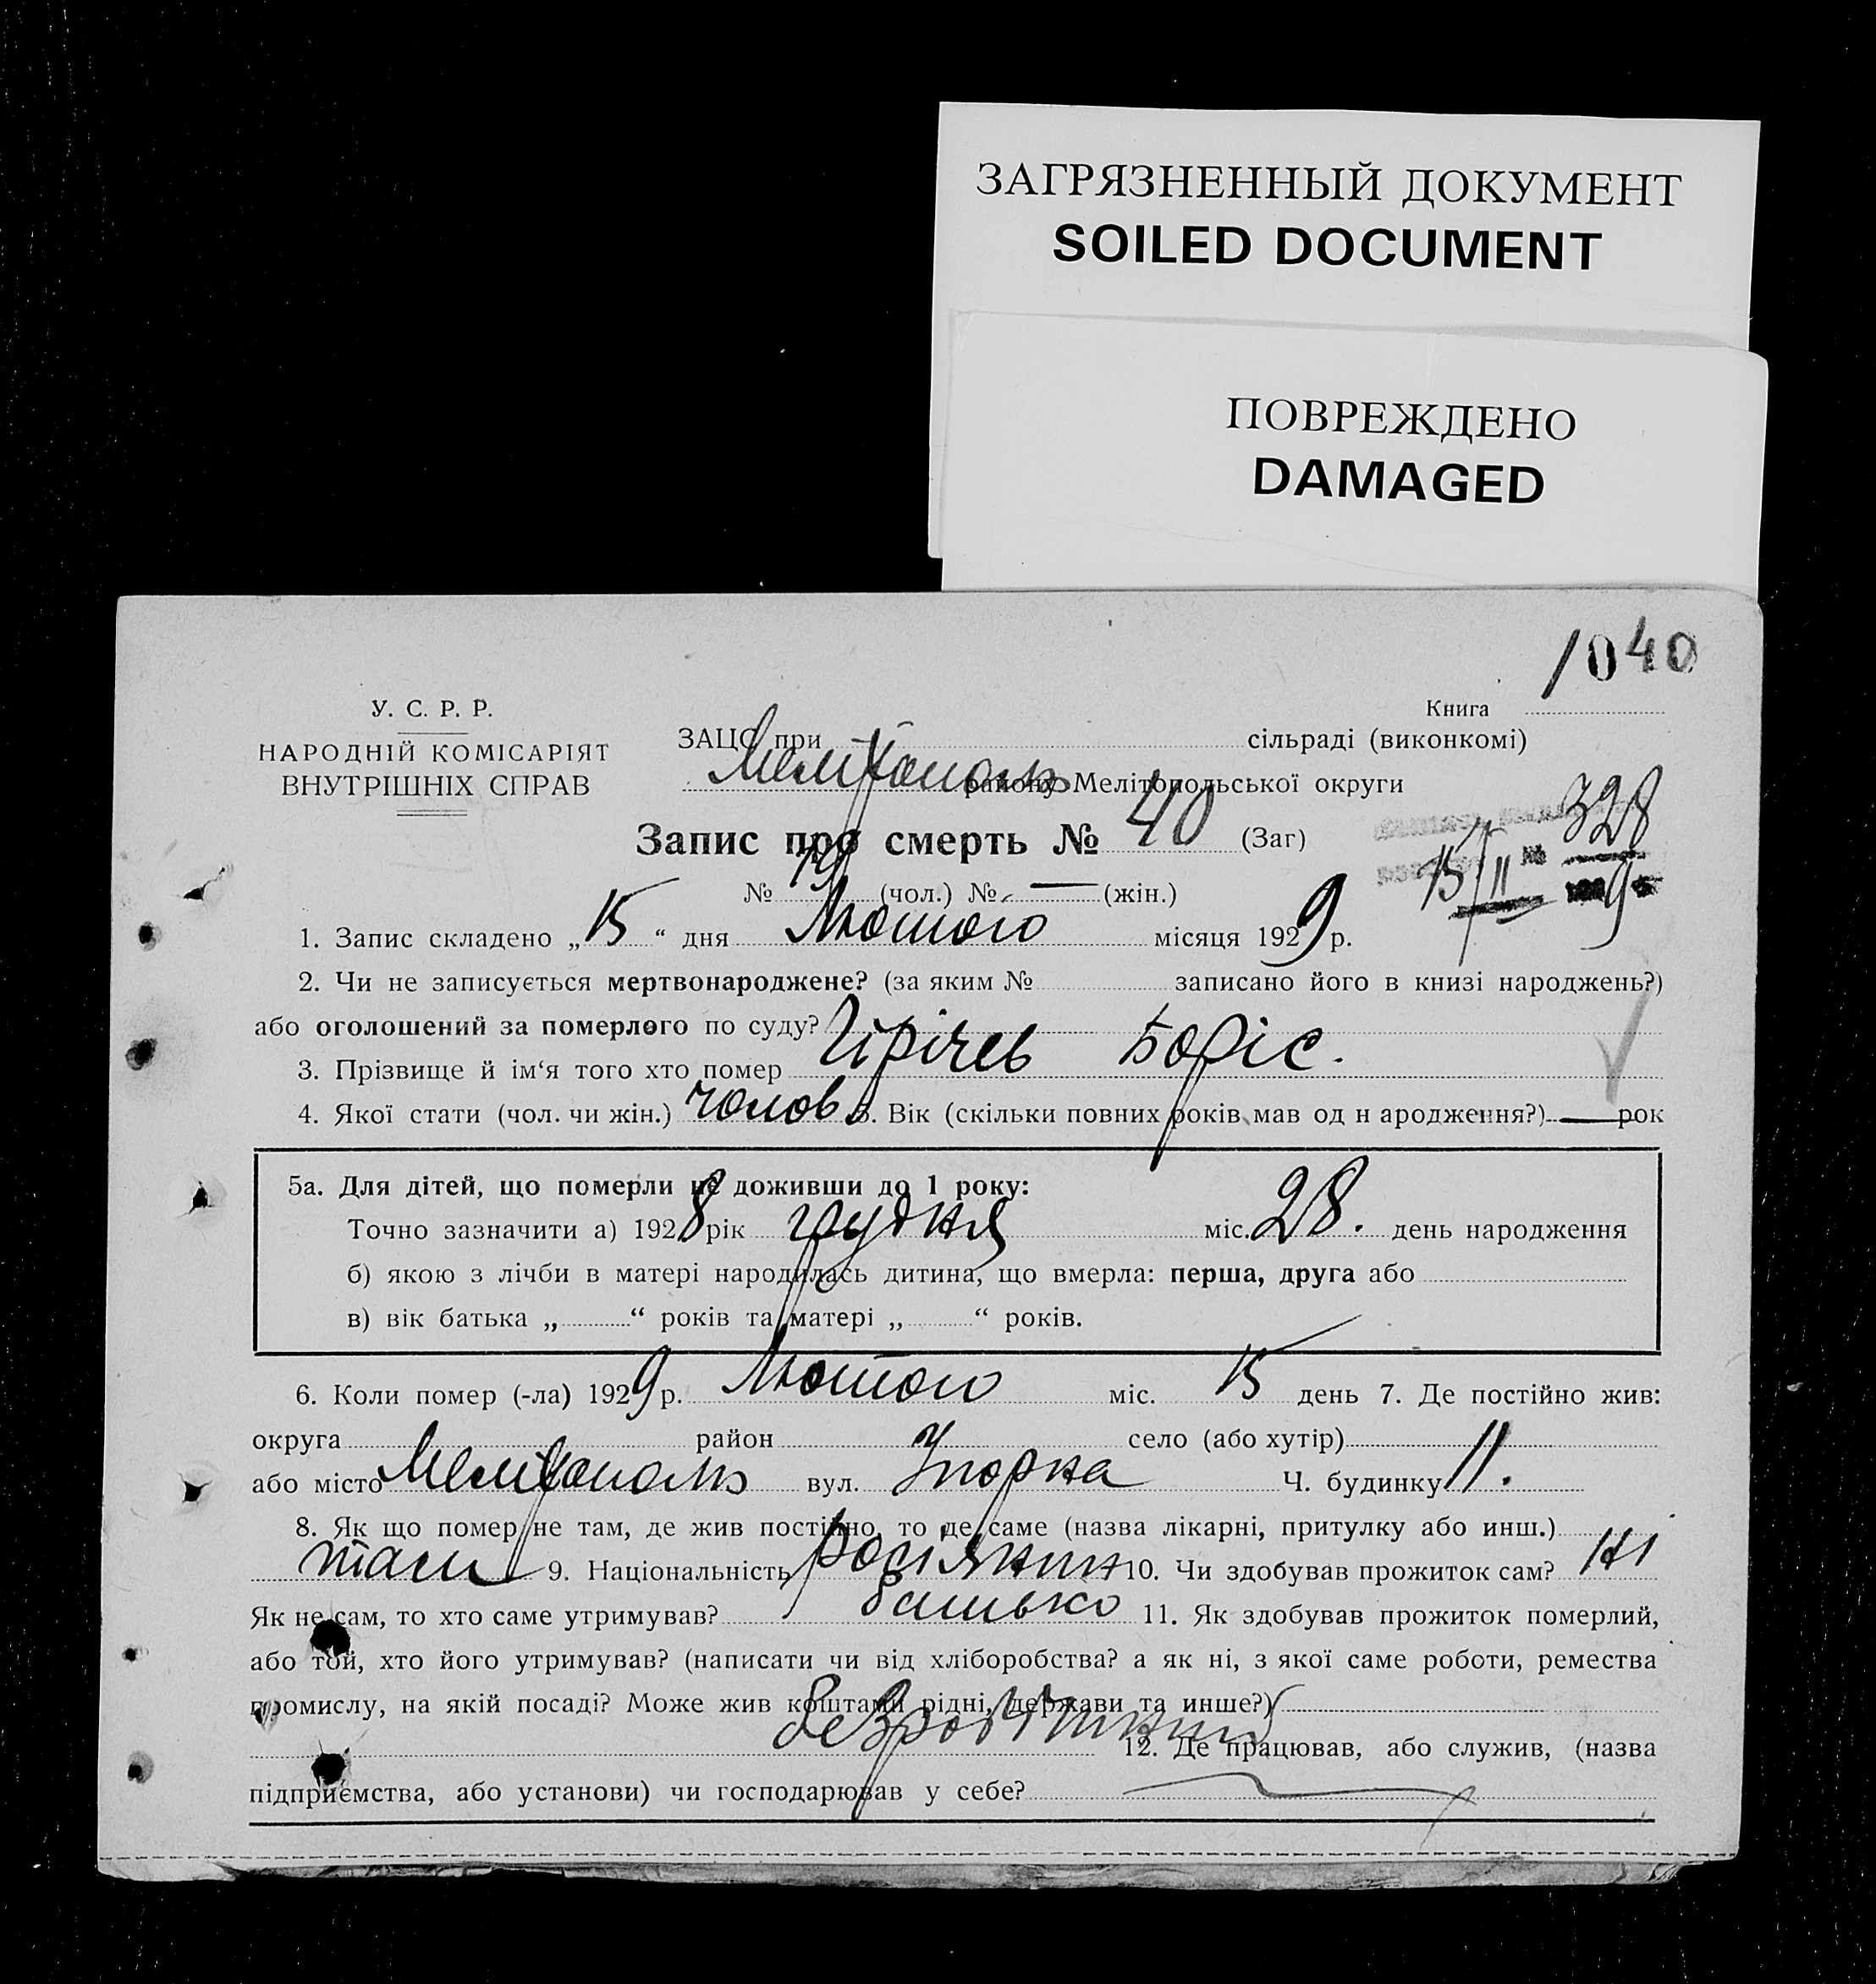 ЗАГРЯЗНЕННЫЙ ДОКУМЕНТ
SOILED DOCUMENT
ПОВРЕЖДЕНО
DAMAGED
1040
У. С. Р. Р.
НАРОДНІЙ КОМІСАРІЯТ
ВНУТРІШНІХ СПРАВ
Книга
ЗАЦС при сільраді (виконкомі)
Мелітополь району Мелітопольської округи
Запис про смерть № 40 (Заг)
15/II № 328
№ 19 (чол.) № — (жін.)
1. Запис складено „15“ дня Лютого місяця 1929 р.
2. Чи не записується мертвонароджене? (за яким № записано його в книзі народжень?)
або оголошений за померлого по суду?
3. Прізвище й ім‘я того хто помер Борис.
4. Якої стати (чол. чи жін.) чолов 5. Вік (скільки повних років мав од н ародження?) — рок
5а. Для дітей, що померли не доживши до 1 року:
Точно зазначити а) 1928 рік грудня міс. 28. день народження
б) якою з лічби в матері народилась дитина, що вмерла: перша, друга або
в) вік батька „ “ років та матері „ “ років.
6. Коли помер (-ла) 1929 р. Лютого міс. 15 день 7. Де постійно жив:
округа район село (або хутір)
або місто Мелітополь вул. Ч. будинку 11.
8. Як що помер не там, де жив постійно, то де саме (назва лікарні, притулку або инш.)
там 9. Національність росіянин 10. Чи здобував прожиток сам? ні
Як не сам, то хто саме утримував? батько 11. Як здобував прожиток померлий,
або той, хто його утримував? (написати чи від хліборобства? а як ні, з якої саме роботи, ремества
промислу, на якій посаді? Може жив коштами рідні, держави та инше?)
безробітний 12. Де працював, або служив, (назва
підприємства, або установи) чи господарював у себе?